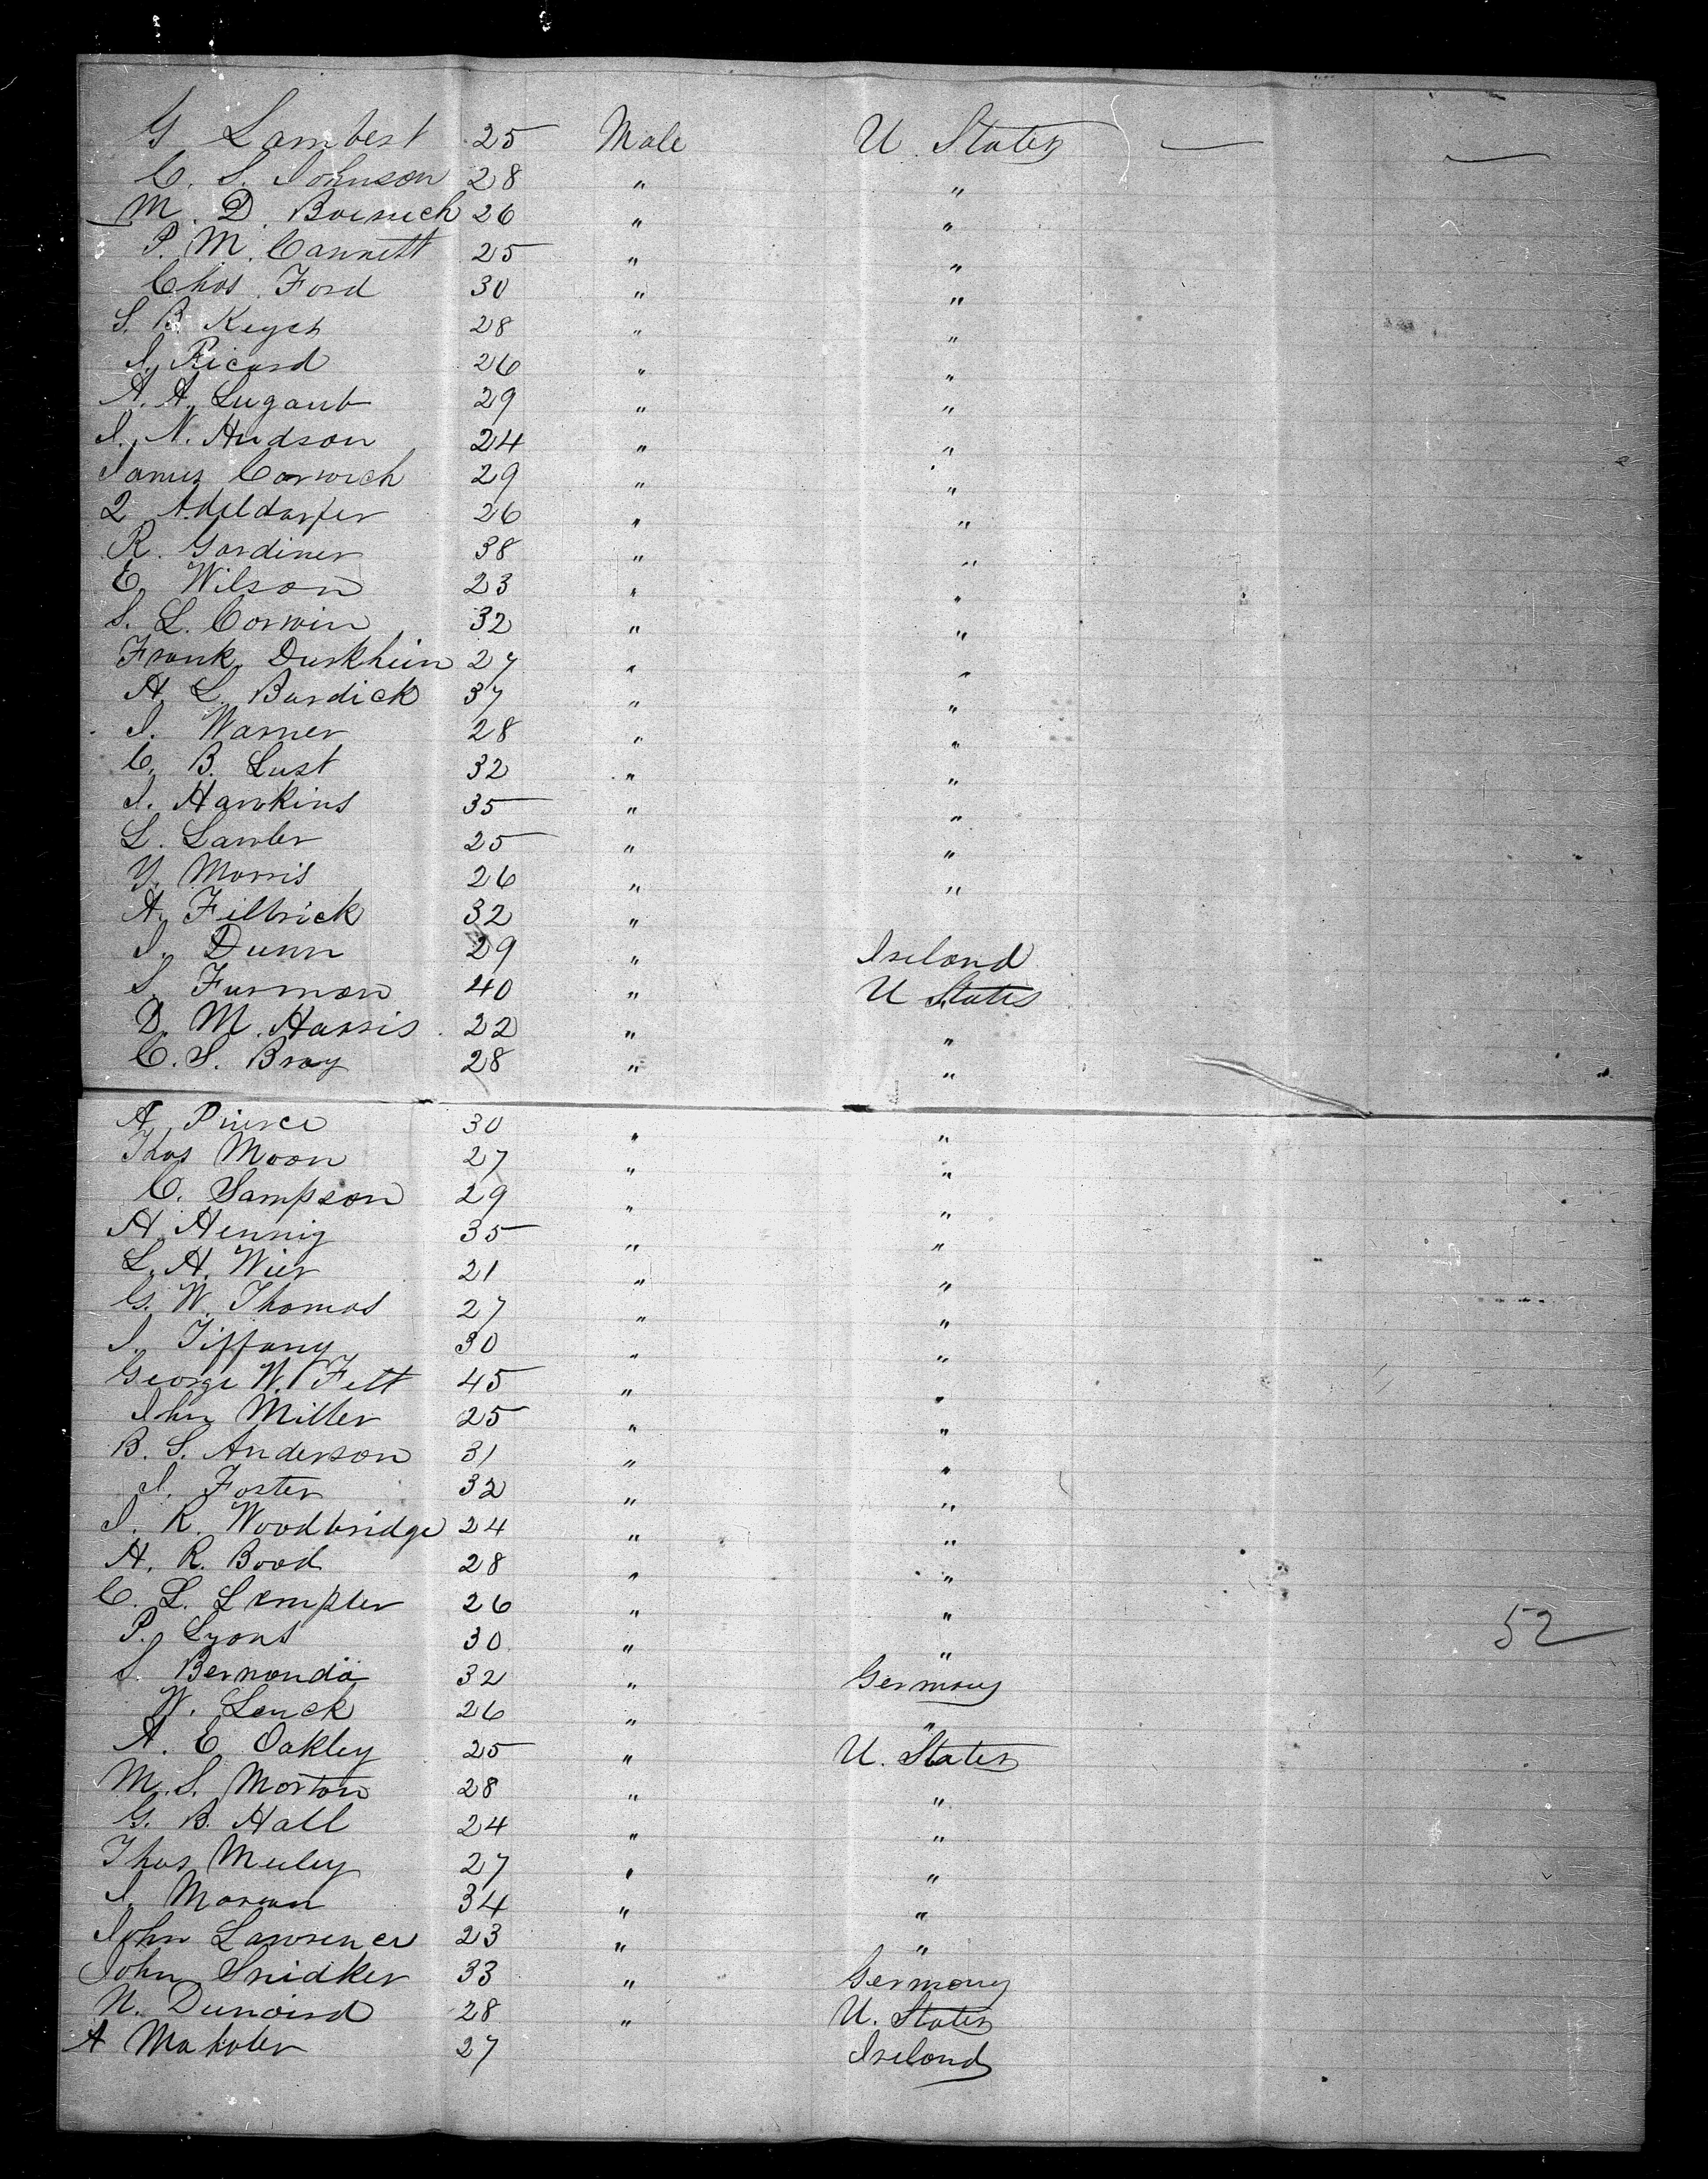 G Lambert 25 Male U. States — —
C. S. Johnson 28 " "
M. D. Boesuch 26 " "
P. M. Cannett 25 " "
Chas. Ford 30 " "
S. B. Keych 28 " "
J. Ricard 26 " "
A. A. Lugaub 29 " "
J. N. Hudson 24 " "
James Corwich 29 " "
Q. Adeldarfer 26 " "
R. Gardiner 38 " "
E. Wilson 23 " "
S. L. Corwin 32 " "
Frank Durkhein 27 " "
H. L. Burdick 37 " "
J. Warner 28 " "
C. B. Lust 32 " "
J. Hawkins 35 " "
L. Lawler 25 " "
Y. Morris 26 " "
A. Filbrick 32 " "
J. Dunn 29 " Ireland
S. Furman 40 " U States
D. M. Harris 22 " "
C. S. Bray 28 " "
A. Pierce 30 " "
Thos Moon 27 " "
C. Sampson 29 " "
H. Hennig 35 " "
L. H. Wier 21 " "
G. W. Thomas 27 " "
J. Tiffany 30 " "
George W. Felt 45 " "
John Miller 25 " "
B. S. Anderson 31 " "
J. Foster 32 " "
J. R. Woodbridge 24 " "
H. R. Bood 28 " "
C. L. Lempler 26 " "
P. Lyons 30 " " 52
S Bernonda 32 " Germany
W. Lenck 26 " "
A. E Oakley 25 " U. States
M. S. Morton 28 " "
G. B. Hall 24 " "
Thos Meuley 27 " "
J. Moran 34 " "
John Lawrence 23 " "
John Snidker 33 " Germany
N. Dunoird 28 " U. States
A Mahaler 27 Ireland